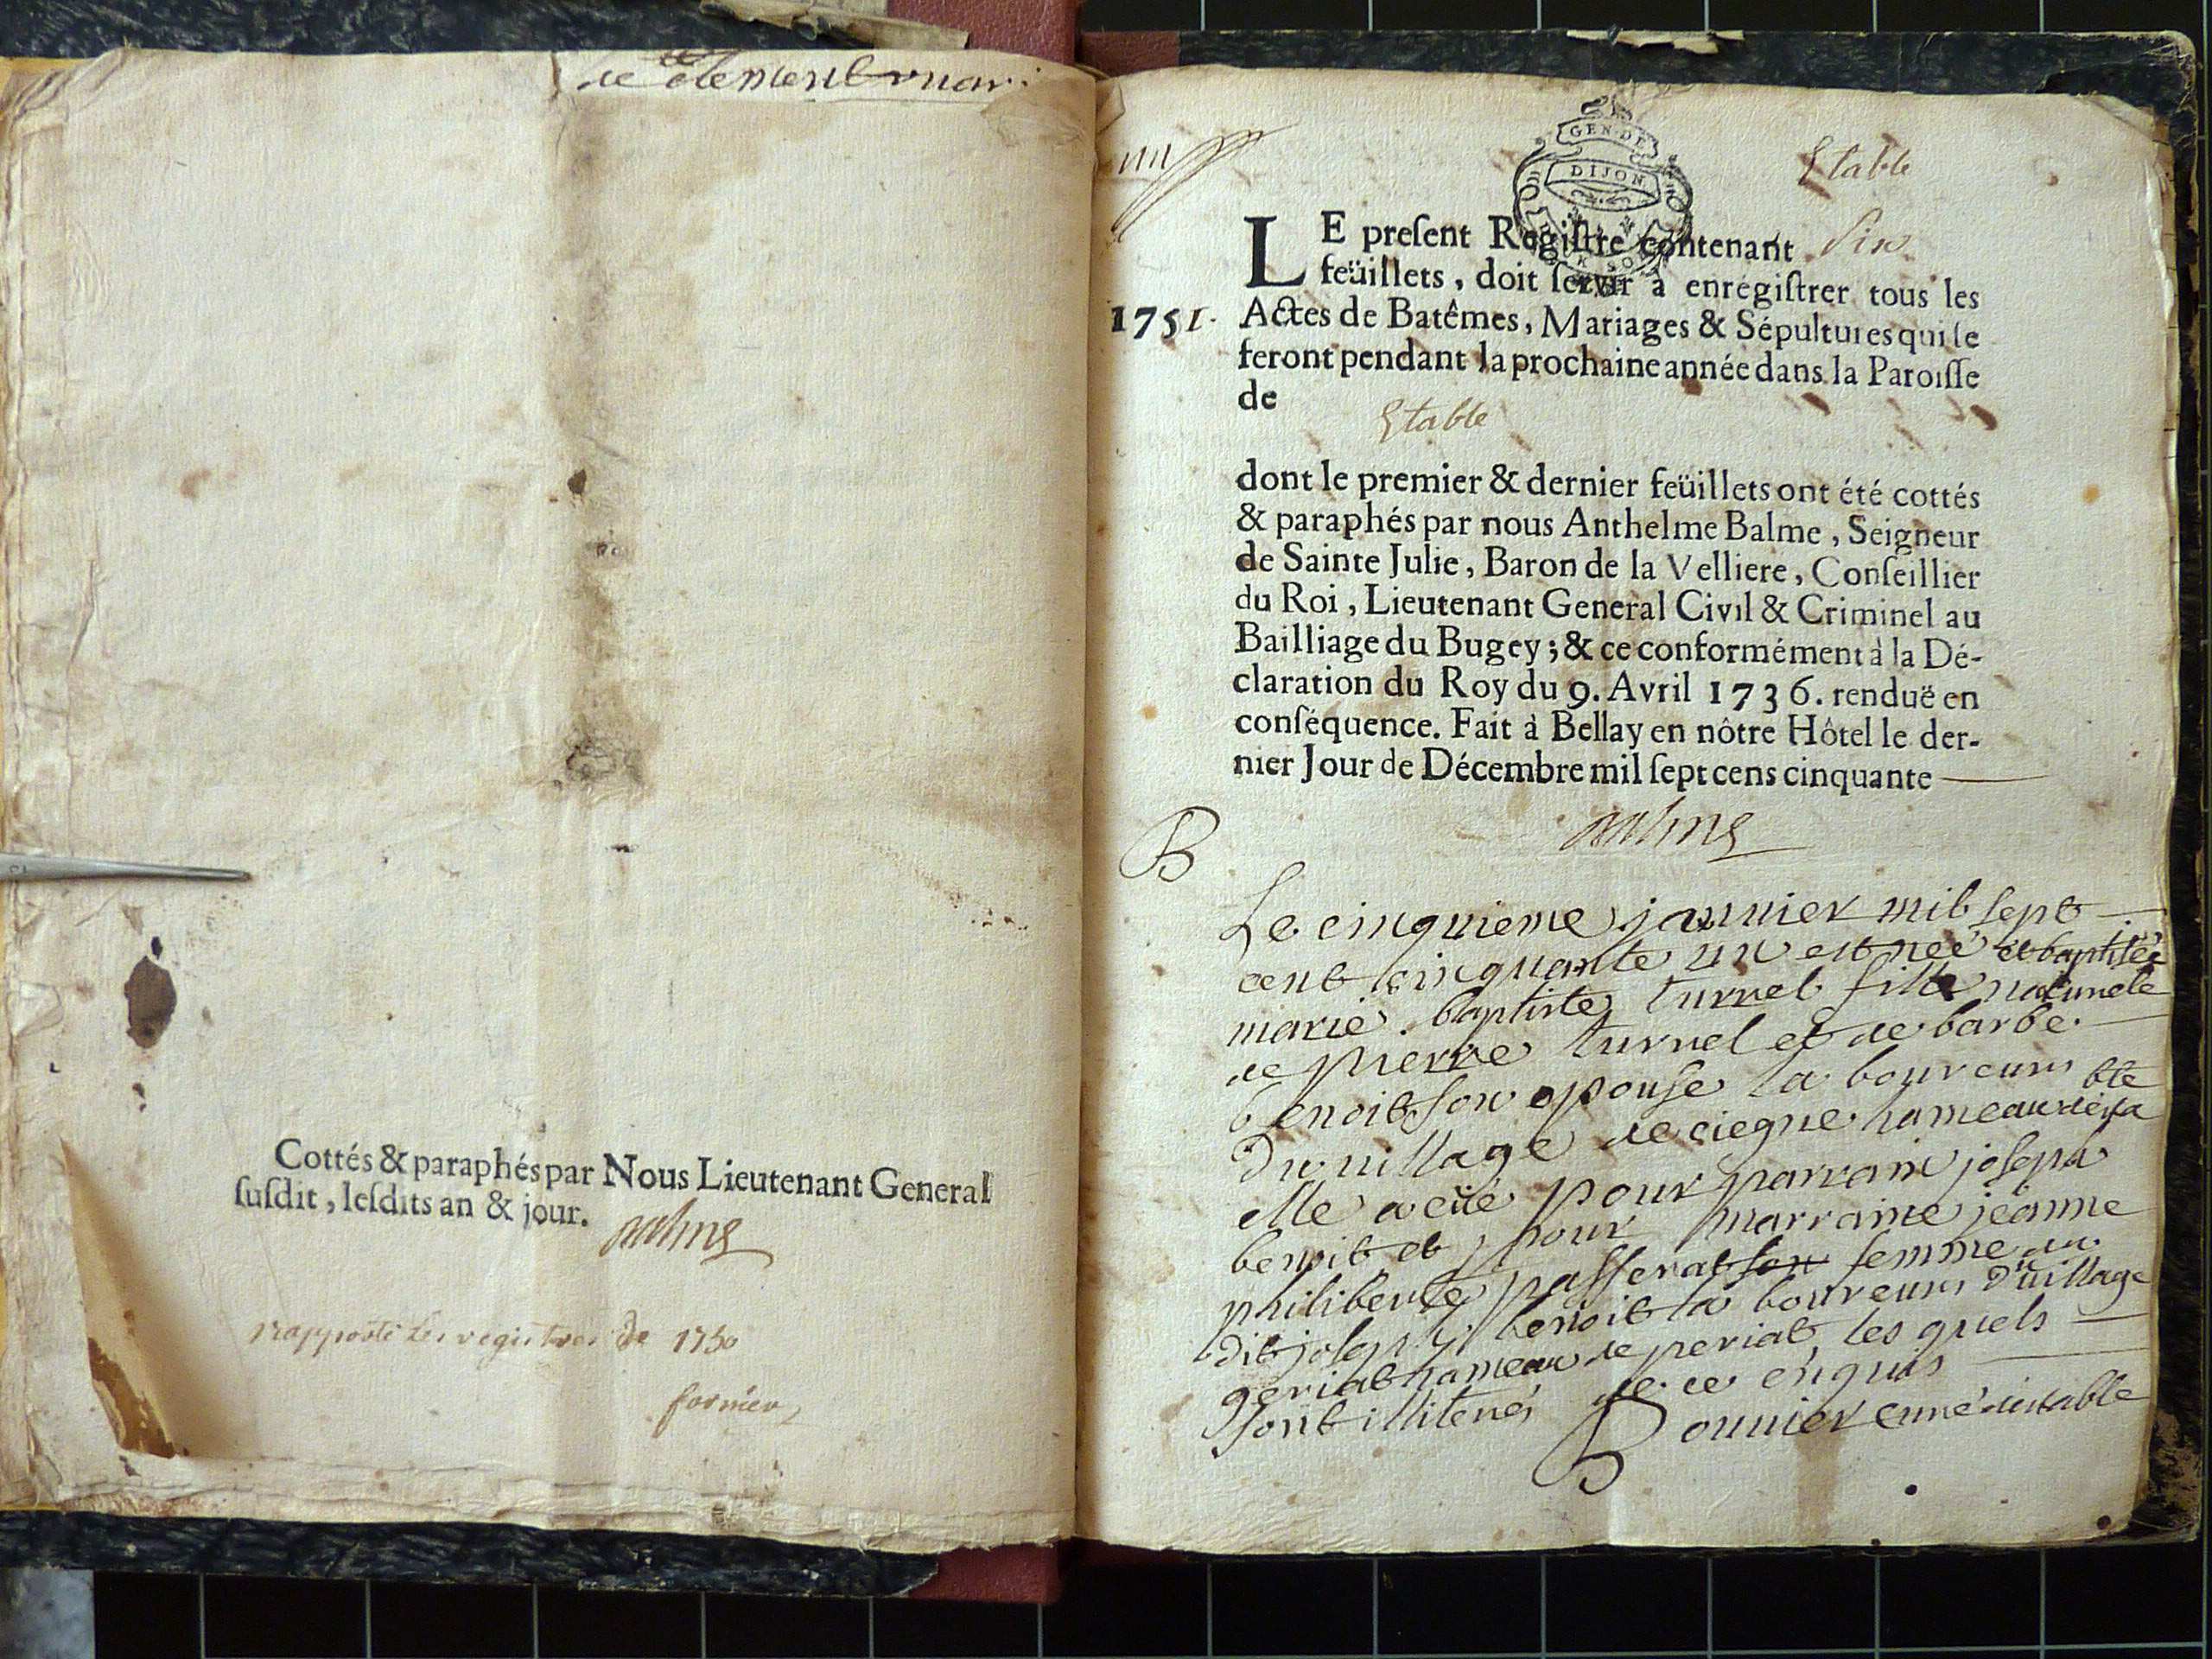 de clement mari
Cottés & paraphés par Nous Lieutenant General
ſuſdit, leſdits an & jour.
Balme
rapporté les registres de 1750
GEN·DE
DIJON
Etable
LE preſent Regiſtre contenant Six
feüillets, doit ſervir à enregiſtrer tous les
1751. Actes de Batêmes, Mariages & Sépultures qui ſe
feront pendant la prochaine année dans la Paroiſſe
de
Etable
dont le premier & dernier feüillets ont été cottés
& paraphés par nous Anthelme Balme, Seigneur
de Sainte Julie, Baron de la Velliere, Conſeillier
du Roi, Lieutenant General Civil & Criminel au
Bailliage du Bugey; & ce conformément à la Dé-
claration du Roy du 9. Avril 1736. renduë en
conſéquence. Fait à Bellay en nôtre Hôtel le der-
nier Jour de Décembre mil ſept cens cinquante
Balme
B
Le cinquieme janvier mil sept
cent cinquante un est neé et baptiseé
marie baptiste turrel fille naturele
de pierre turrel et de barbe
benoit son epouse laboureurs
du village de ciegne hameau
elle a eüe pour parrain joseph
benoit et pour marraine jeanne
philiberte passerat son femme du
dit joseph benoit laboureurs du village
geriat hameau de periat les quels
sont illiterés de ce enquis
Bouvier curé